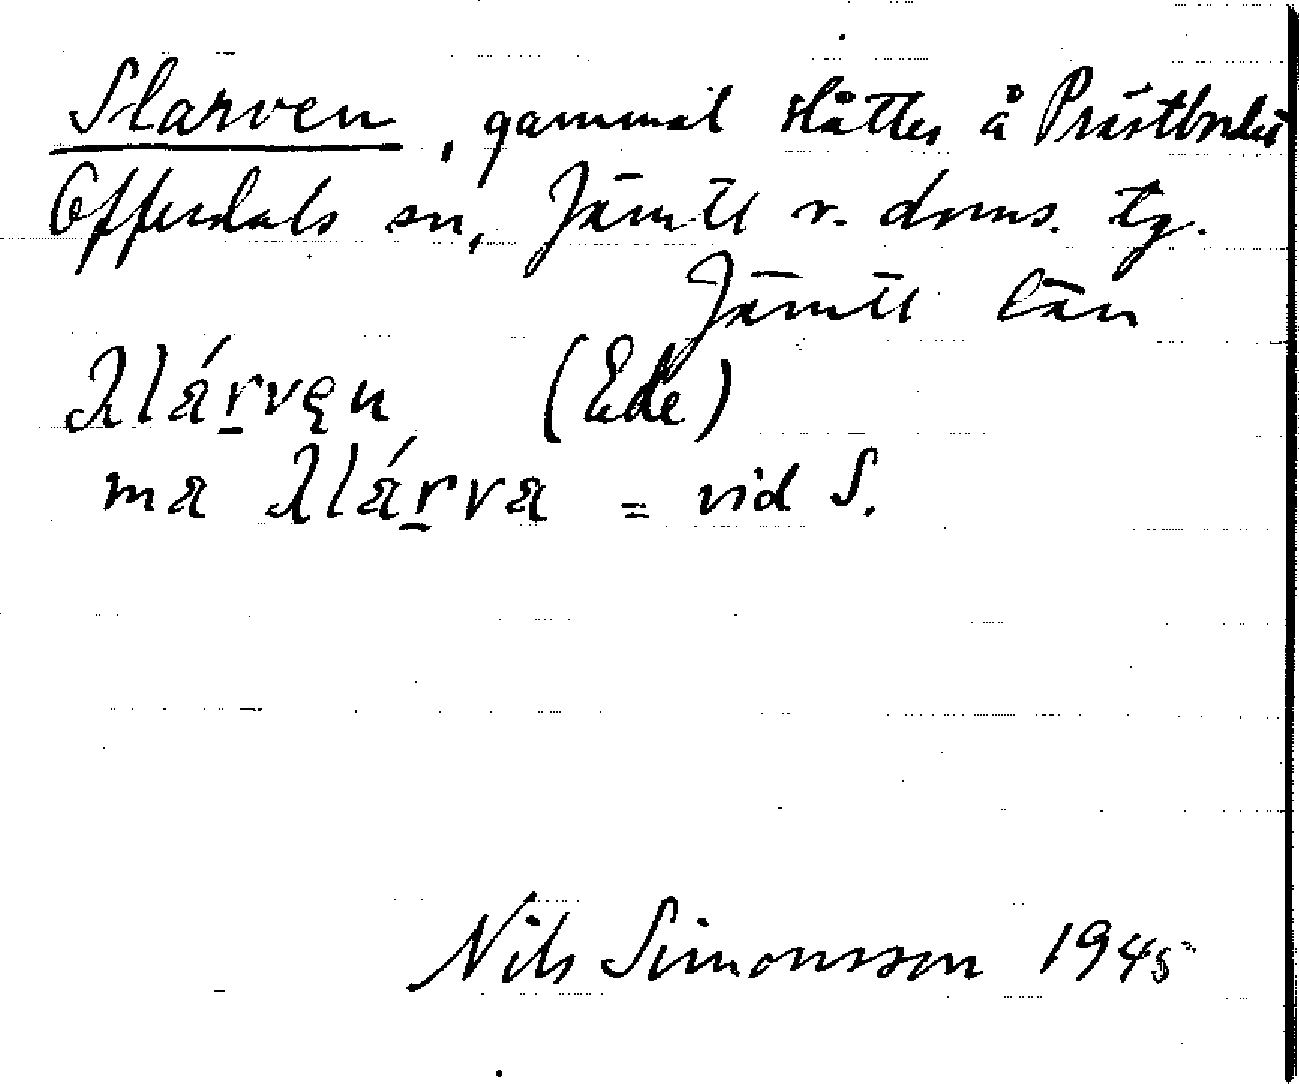 Slarven, gammal slåtter å Prästbordet
Offerdals sn, Jämtl v. doms. tg.
Jämtl län
λlárvęn (Ede)
ma λlárva = vid S.
Nils Simonsson 1945